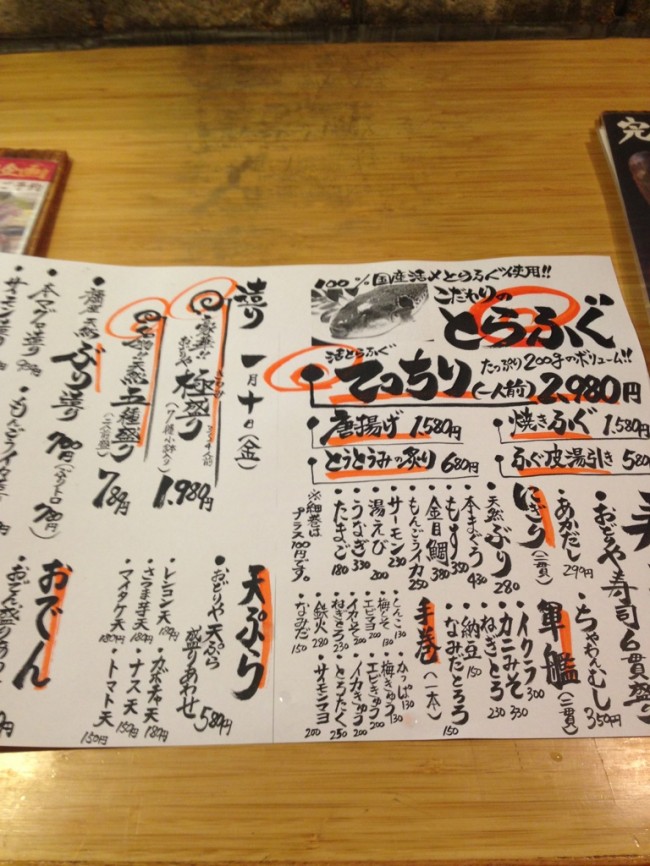 100%国産活〆とらふぐ使用!!
こだわりの
とらふぐ
活とらふぐ
たっぷり200gのボリューム!!
てっちり(一人前) 2,980円
唐揚げ 1,580円
焼きふぐ 1,580円
とうとうみの炙り 680円
ふぐ皮湯引き 580
おどりや寿司6貫盛り
あかだし 299円
ちゃわんむし 350円
にぎり(二貫)
天然ぶり 280
本まぐろ 430
もす 350
金目鯛 380
もんごうイカ 250
サーモン 230
湯えび 200
うなぎ 300
たまご 180
※細巻は
プラス100円です。
軍艦(二貫)
イクラ 300
カニみそ 330
ねぎとろ 230
納豆 150
なみだとろろ 150
手巻(一本)
しんこ 130
梅しそ 130
エビマヨ 200
イカしそ 200
ねぎとろ 230
鉄火 280
なみだ 150
かっぱ 130
梅きゅう 130
エビきゅう 200
イカきゅう 200
とろたく 250
サーモンマヨ 200
造り 一月十日(金)
豪華!!
おどりや
極盛り
1,980円
五種盛り
789円
ぶり造り
本マグロ造り
サーモン造り
もんごうイカ
天ぷら
おどりや天ぷら
盛りあわせ
580円
レンコン天 180円
さつま芋天 180円
マイタケ天 180円
カボチャ天 180円
ナス天 150円
トマト天 150円
おでん
おでん盛りあわせ
完